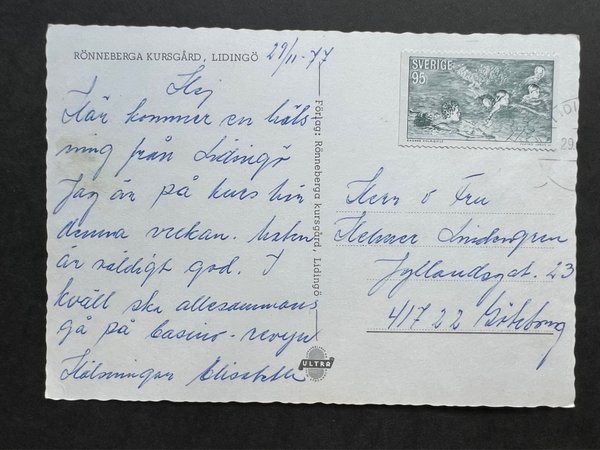 RÖNNEBERGA KURSGÅRD, LIDINGÖ
29/11-77
Hej
Här kommer en häls
ning från Lidingö
Jag är på kurs här
denna veckan. Maten
är väldigt god. I
kväll ska allesammans
gå på Casino-revyn
Hälsningar Elisabeth
Förlag: Rönneberga kursgård, Lidingö
ULTRA
SVERIGE
95
29
Herr o Fru
Helmer Lindengren
Jyllandsgat. 23
417 22 Göteborg